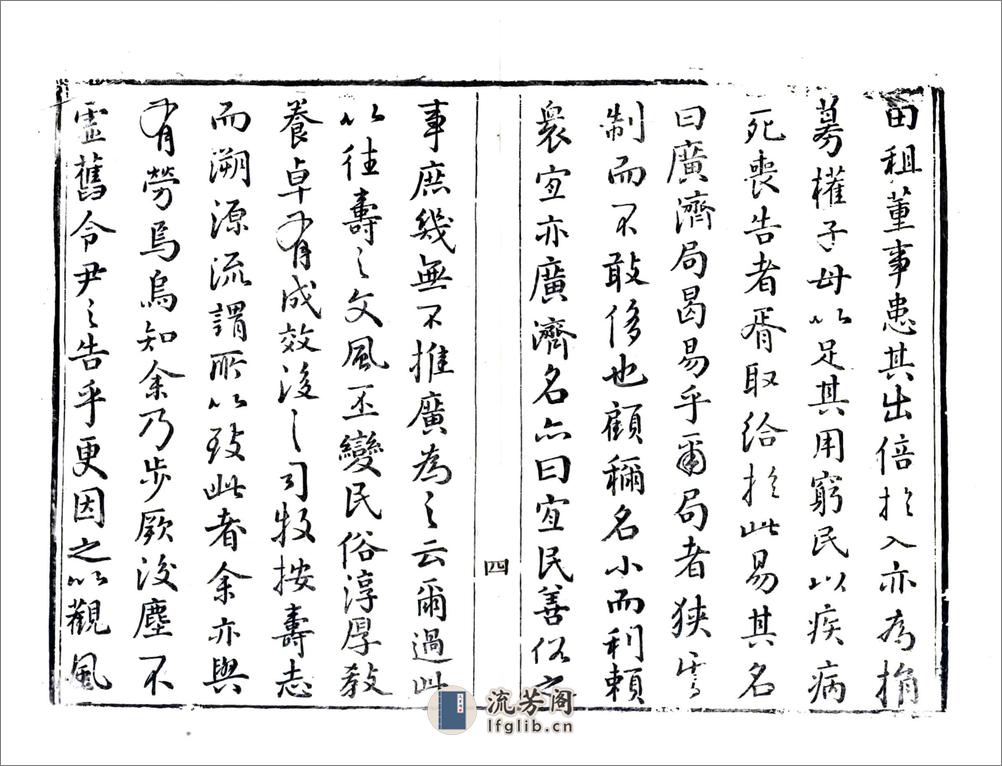 田租董事患其出倍於入亦為捐
募權子母以足其用窮民以疾病
死喪告者胥取給於此易其名
曰廣濟局曷易乎爾局者狹焉
制而不敢侈也顧稱名小而利賴
衆宜亦廣濟名亦曰宜民善俗之
四
事庶幾無不推廣為之云爾過此
以往壽之文風丕變民俗淳厚教
養卓有成效後之司牧按壽志
而溯源流謂所以致此者余亦與
有勞焉烏知余乃步厥後塵不
虛舊令尹之告乎更因之以觀風
流芳阁
lfglib.cn